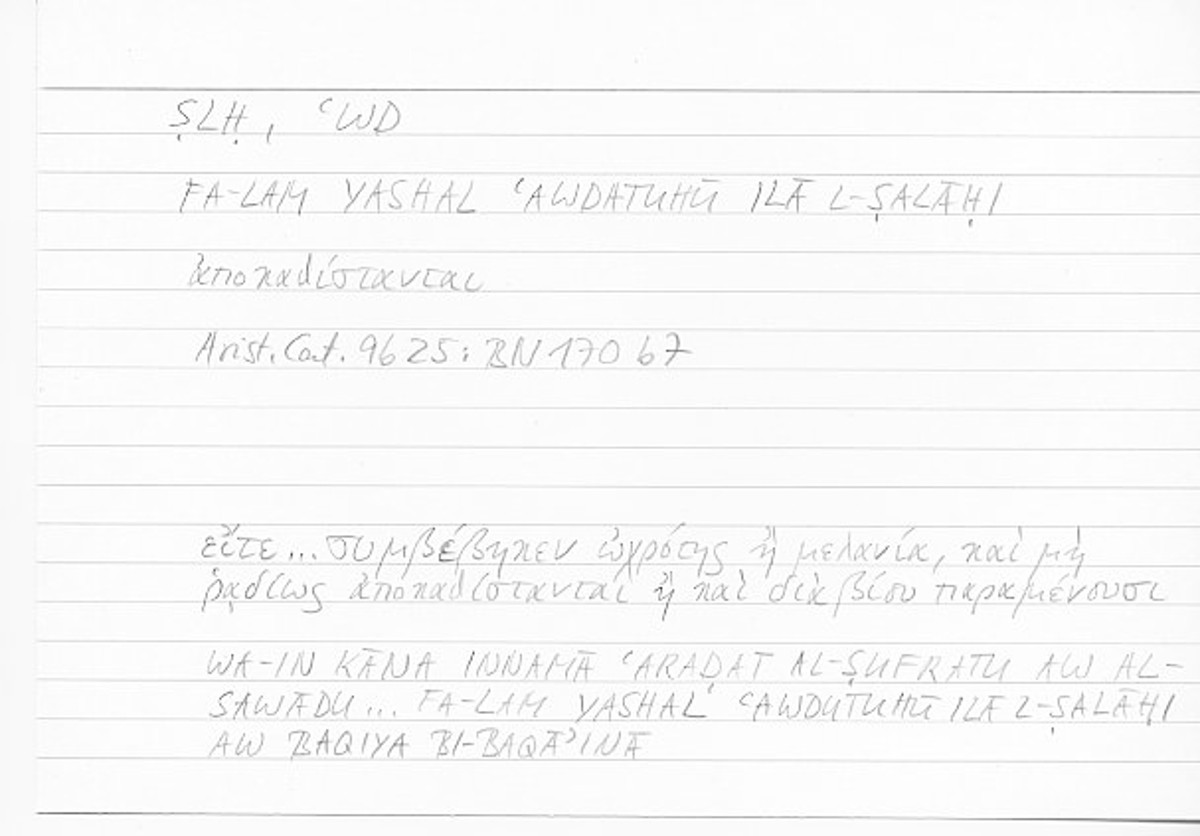 ṢLḤ, ʿWD
FA-LAM YASHAL ʿAWDATUHŪ ILĀ L-ṢALĀḤI
ἀποκαθίστανται
Arist. Cat. 9b 25: BN 170 b7
εἴτε... συμβέβηκεν ὠχρότης ἢ μελανία, καὶ μὴ
ῥᾳδίως ἀποκαθίστανται ἢ καὶ διὰ βίου παραμένουσι
WA-IN KĀNA INNAMĀ ʿARAḌAT AL-ṢUFRATU AW AL-
SAWĀDU... FA-LAM YASHAL ʿAWDUTUHŪ ILĀ L-ṢALĀḤI
AW BAQIYA BI-BAQĀʾINĀ